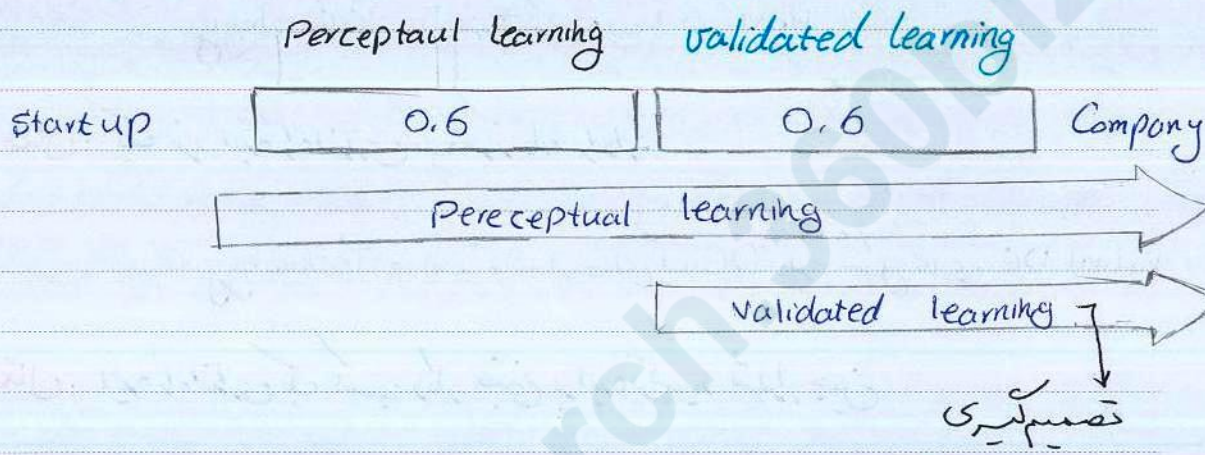 Perceptaul learning validated learning
Startup 0.6 0.6 Company
Pereceptual learning
validated learning
تصمیم‌گیری